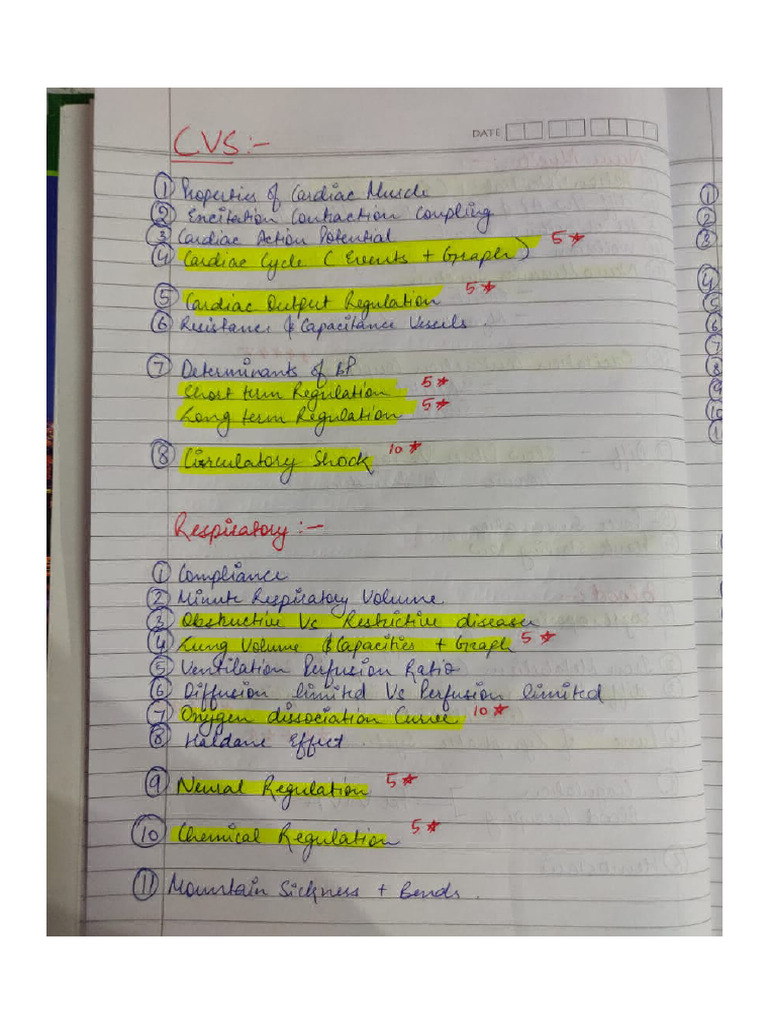 DATE
CVS:-
① Properties of Cardiac Muscle
② Excitation Contraction Coupling
③ Cardiac Action Potential
④ Cardiac Cycle ( Events + Graph) 5*
⑤ Cardiac Output Regulation 5*
⑥ Resistance & Capacitance Vessels.
⑦ Determinants of BP
Short term Regulation 5*
Long term Regulation 5*
⑧ Circulatory Shock 10*
Respiratory:-
① Compliance
② Minute Respiratory Volume
③ Obstructive Vs Restrictive disease
④ Lung Volume & Capacities + Graph 5*
⑤ Ventilation Perfusion Ratio
⑥ Diffusion limited Vs Perfusion limited
⑦ Oxygen dissociation Curve 10*
⑧ Haldane Effect
⑨ Neural Regulation 5*
⑩ Chemical Regulation 5*
⑪ Mountain Sickness + Bends.
①
②
③
④
⑤
⑥
⑦
⑧
⑨
⑩